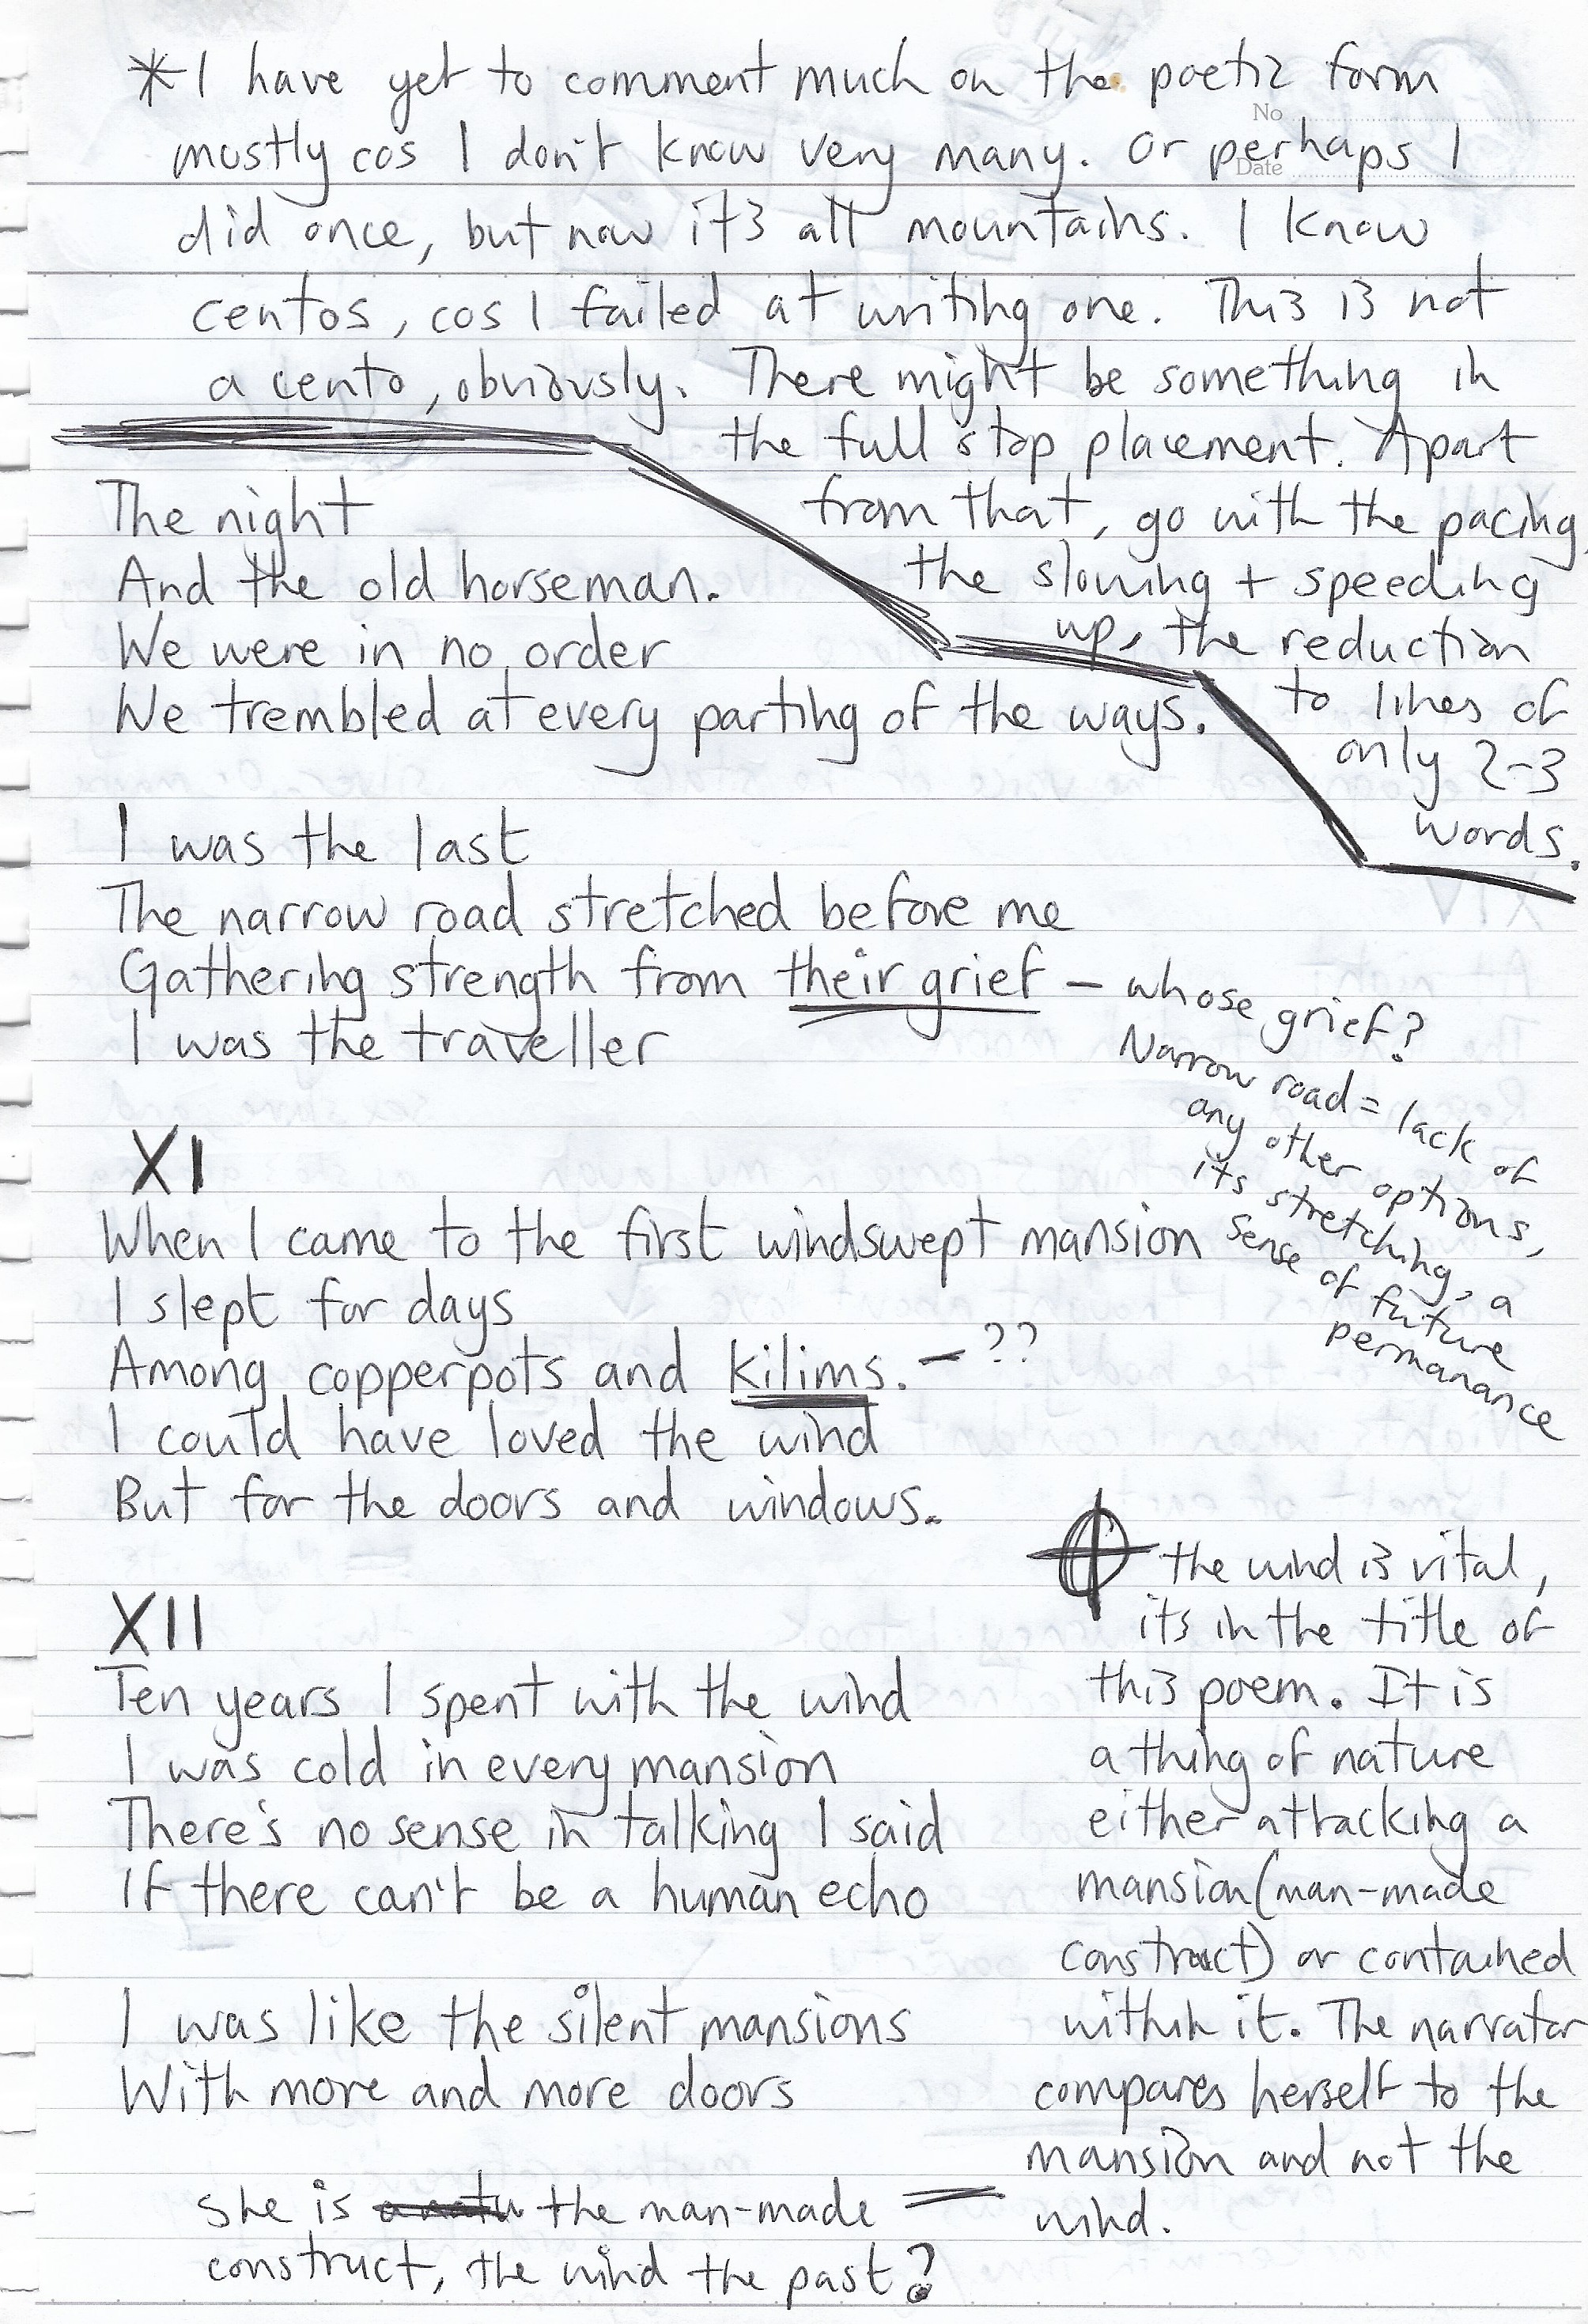 *I have yet to comment much on the poetic form
No
mostly cos I don't know very many. Or perhaps I
Date
did once, but now it's all mountains. I know
centos, cos I failed at writing one. This is not
a cento, obviously. There might be something in
the full stop placement. Apart
from that, go with the pacing,
the slowing + speeding
up, the reduction
to lines of
only 2-3
words.
The night
And the old horseman.
We were in no order
We trembled at every parting of the ways.
I was the last
The narrow road stretched before me
Gathering strength from their grief – whose grief?
I was the traveller
Narrow road = lack of
any other options,
its stretching, a
sense of future
permanance
XI
When I came to the first windswept mansion
I slept for days
Among copperpots and kilims. – ??
I could have loved the wind
But for the doors and windows.
XII
Ten years I spent with the wind
I was cold in every mansion
There's no sense in talking I said
If there can't be a human echo
I was like the silent mansions
With more and more doors
the wind is vital,
its in the title of
this poem. It is
a thing of nature
either attacking a
mansion (man-made
construct) or contained
within it. The narrator
compares herself to the
mansion and not the
wind.
She is the man-made
construct, the wind the past?